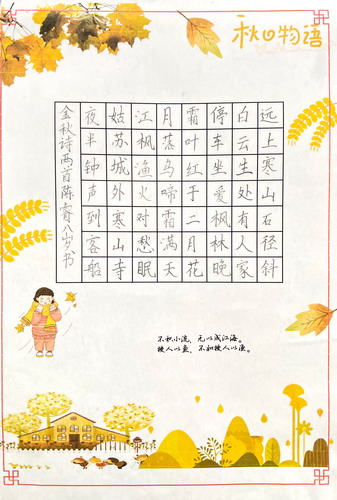 秋日物语
远上寒山石径斜
白云生处有人家
停车坐爱枫林晚
霜叶红于二月花
月落乌啼霜满天
江枫渔火对愁眠
姑苏城外寒山寺
夜半钟声到客船
金秋诗两首陈睿八岁书
不积小流，无以成江海。
授人以鱼，不如授人以渔。